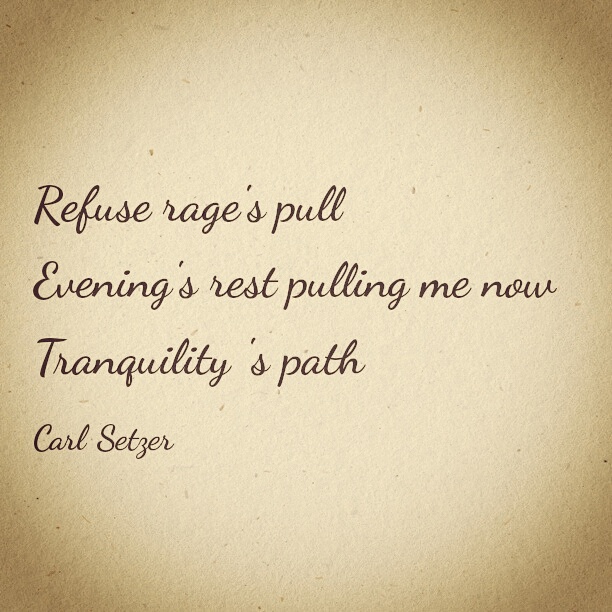 Refuse rage's pull
Evening's rest pulling me now
Tranquility 's path
Carl Setzer